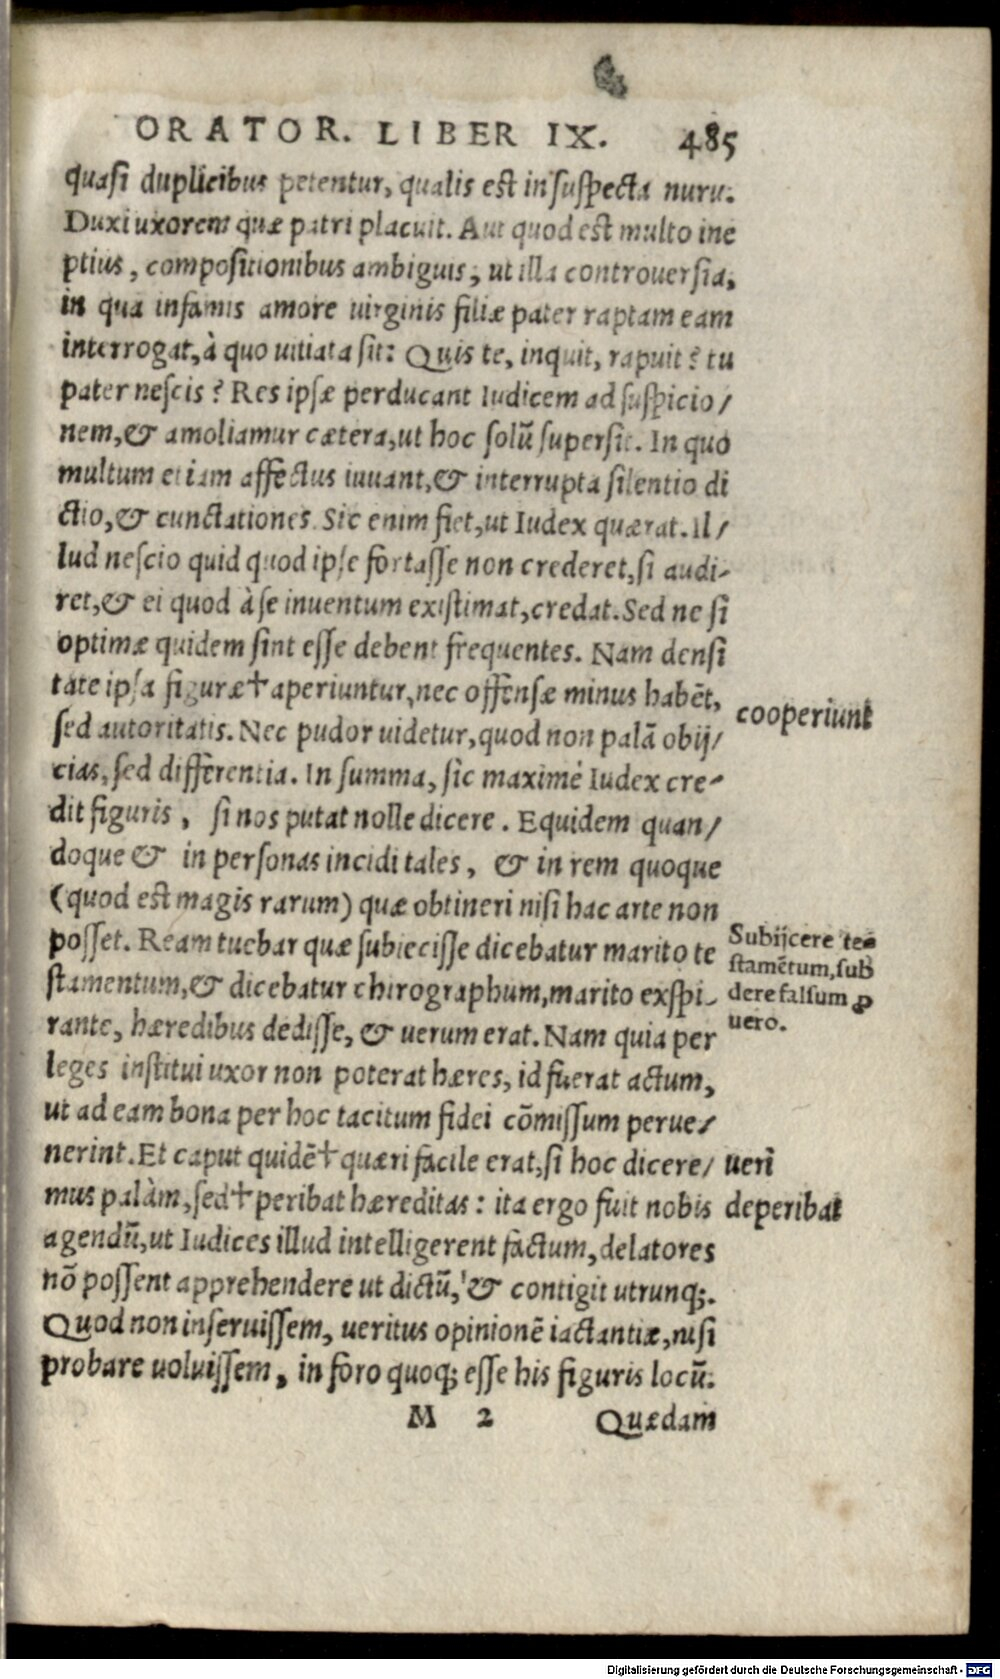 ORATOR. LIBER IX. 485
quasi duplicibus petentur, qualis est in suspecta nuru.
Duxi uxorem quæ patri placuit. Aut quod est multo ine
ptius, compositionibus ambiguis, ut illa controuersia,
in qua infamis amore uirginis filiæ pater raptam eam
interrogat, à quo uitiata sit: Quis te, inquit, rapuit? tu
pater nescis? Res ipsæ perducant Iudicem ad suspicio/
nem, & amoliamur cætera, ut hoc solũ supersit. In quo
multum etiam affectus iuuant, & interrupta silentio di
ctio, & cunctationes. Sic enim fiet, ut Iudex quærat. Il/
lud nescio quid quod ipse fortasse non crederet, si audi-
ret, & ei quod à se inuentum existimat, credat. Sed ne si
optimæ quidem sint esse debent frequentes. Nam densi
tate ipsa figuræ † aperiuntur, nec offensæ minus habẽt,
cooperiunt
sed autoritatis. Nec pudor uidetur, quod non palã obij/
cias, sed differentia. In summa, sic maximè Iudex cre-
dit figuris, si nos putat nolle dicere. Equidem quan/
doque & in personas incidi tales, & in rem quoque
(quod est magis rarum) quæ obtineri nisi hac arte non
posset. Ream tuebar quæ subiecisse dicebatur marito te
stamentum, & dicebatur chirographum, marito exspi-
rante, hæredibus dedisse, & uerum erat. Nam quia per
Subijcere te-
stamẽtum, sub
dere falsum ꝓ
uero.
leges institui uxor non poterat hæres, id fuerat actum,
ut ad eam bona per hoc tacitum fidei cõmissum perue/
nerint. Et caput quidẽ † quæri facile erat, si hoc dicere/
ueri
mus palàm, sed † peribat hæreditas: ita ergo fuit nobis
deperibat
agendũ, ut Iudices illud intelligerent factum, delatores
nõ possent apprehendere ut dictũ, & contigit utrunq;.
Quod non inseruissem, ueritus opinionẽ iactantiæ, nisi
probare uoluissem, in foro quoq; esse his figuris locũ.
M 2 Quædam
Digitalisierung gefördert durch die Deutsche Forschungsgemeinschaft - DFG